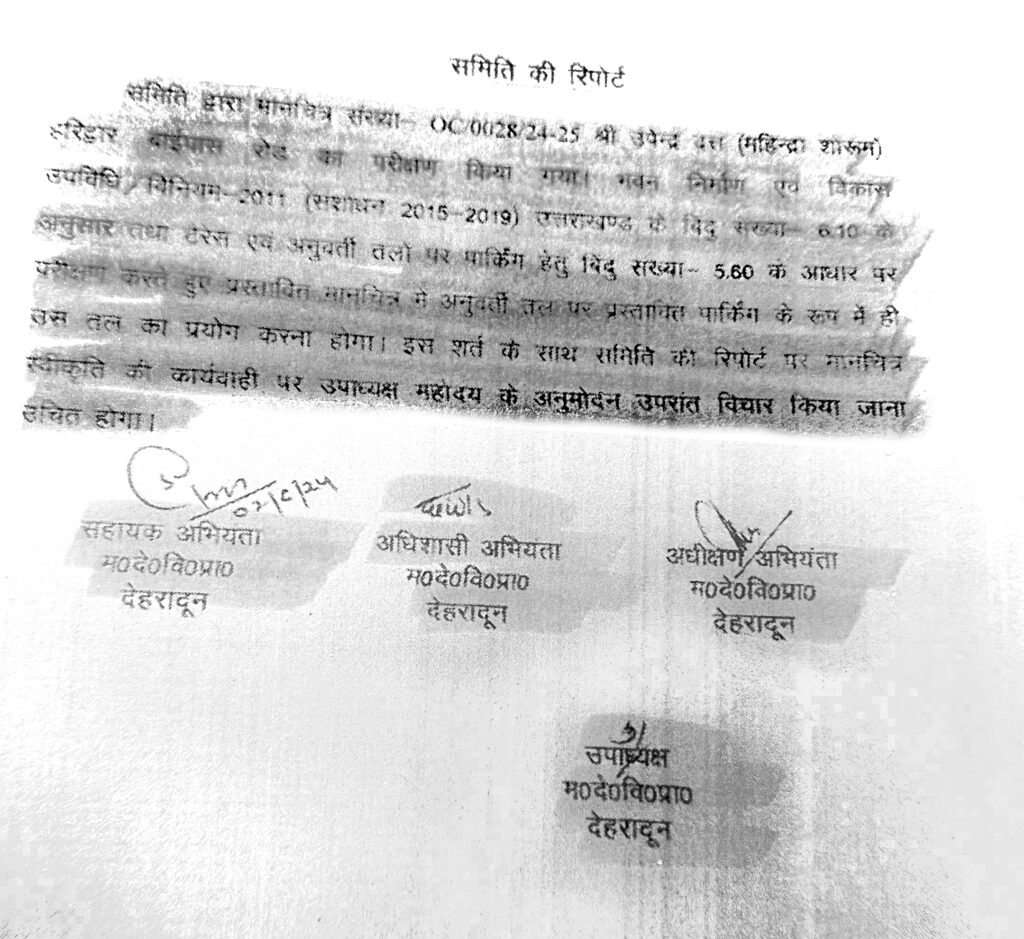 समिति की रिपोर्ट
समिति द्वारा मानचित्र संख्या- OC/0028/24-25 श्री उपेन्द्र दत्त (महिन्द्रा शोरूम)
हरिद्वार बाईपास रोड का परीक्षण किया गया। भवन निर्माण एवं विकास
उपविधि/विनियम-2011 (संशोधन 2015-2019) उत्तराखण्ड के बिंदु संख्या- 6.10 के
अनुसार तथा टेरेस एवं अनुवर्ती तलों पर पार्किंग हेतु बिंदु संख्या- 5.60 के आधार पर
परीक्षण करते हुए प्रस्तावित मानचित्र में अनुवर्ती तल पर प्रस्तावित पार्किंग के रूप में ही
उस तल का प्रयोग करना होगा। इस शर्त के साथ समिति की रिपोर्ट पर मानचित्र
स्वीकृति की कार्यवाही पर उपाध्यक्ष महोदय के अनुमोदन उपरांत विचार किया जाना
उचित होगा।
सहायक अभियंता
म0दे0वि0प्रा0
देहरादून
अधिशासी अभियंता
म0दे0वि0प्रा0
देहरादून
अधीक्षण अभियंता
म0दे0वि0प्रा0
देहरादून
उपाध्यक्ष
म0दे0वि0प्रा0
देहरादून